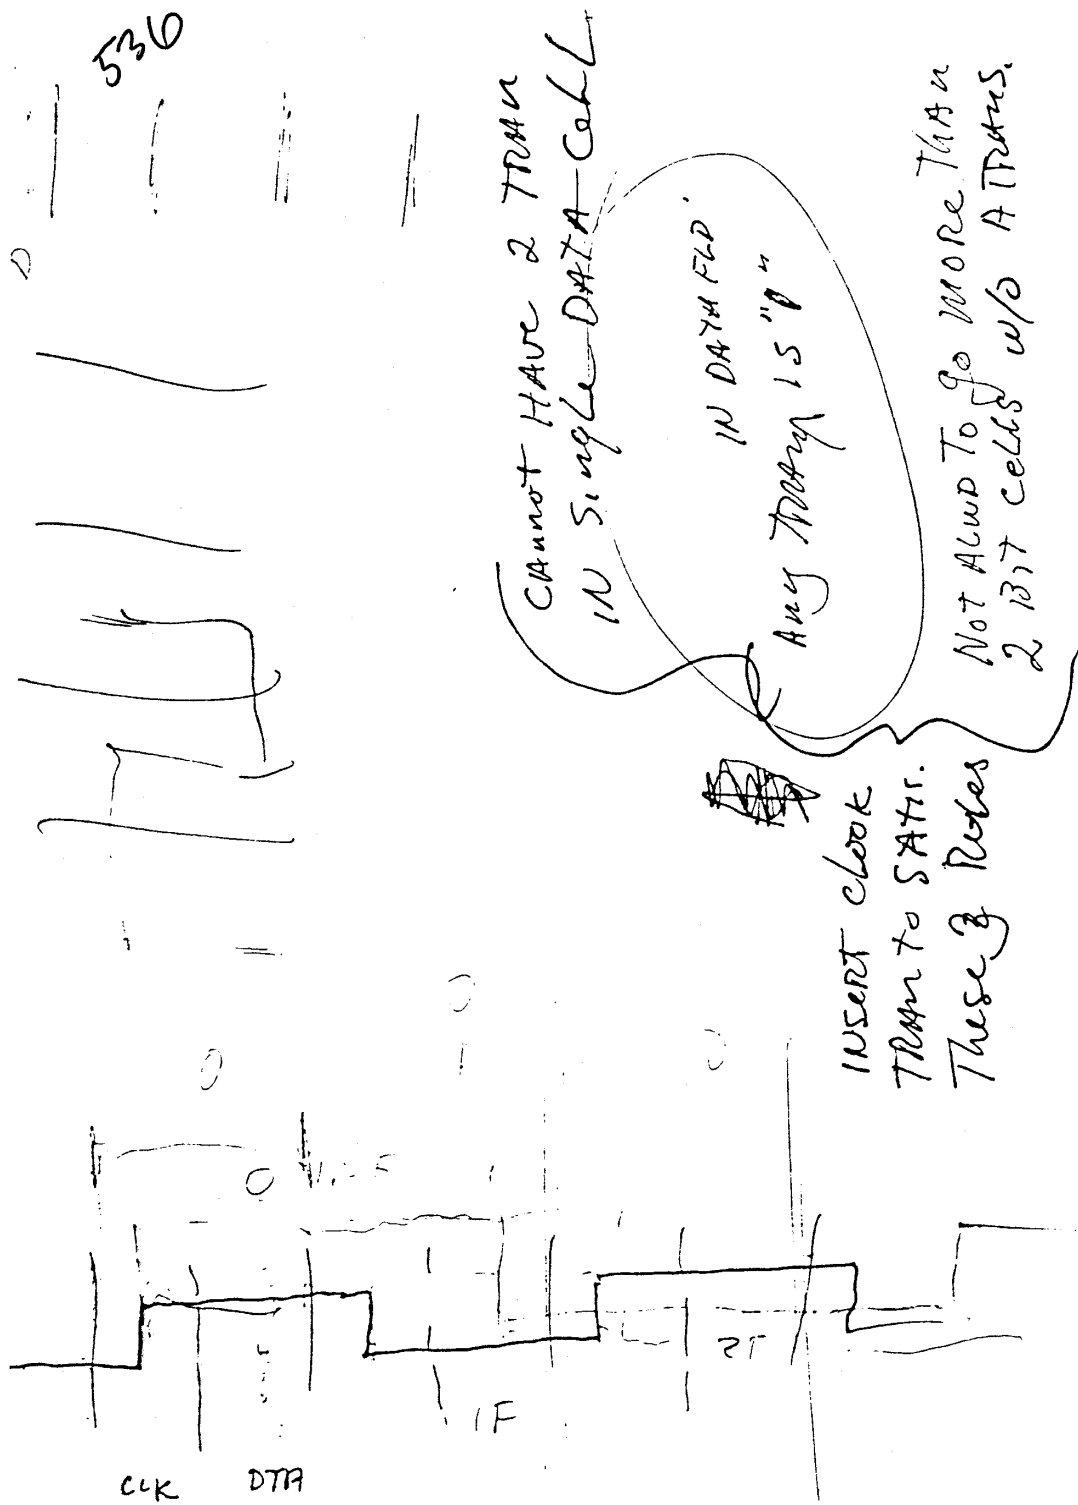 536
CANNOT HAVE 2 TRAN
IN SINgLe DATA CeLL
IN DATA FLD
ANy TRAN IS "1"
NOT ALWD TO go MORe THAN
2 BIT CeLLS w/o A TRANS.
INSeRT CLOCK
TRAN to SATIS.
THeSe 3 RULeS
CLK DTA
1F
2F
0
0
0
0